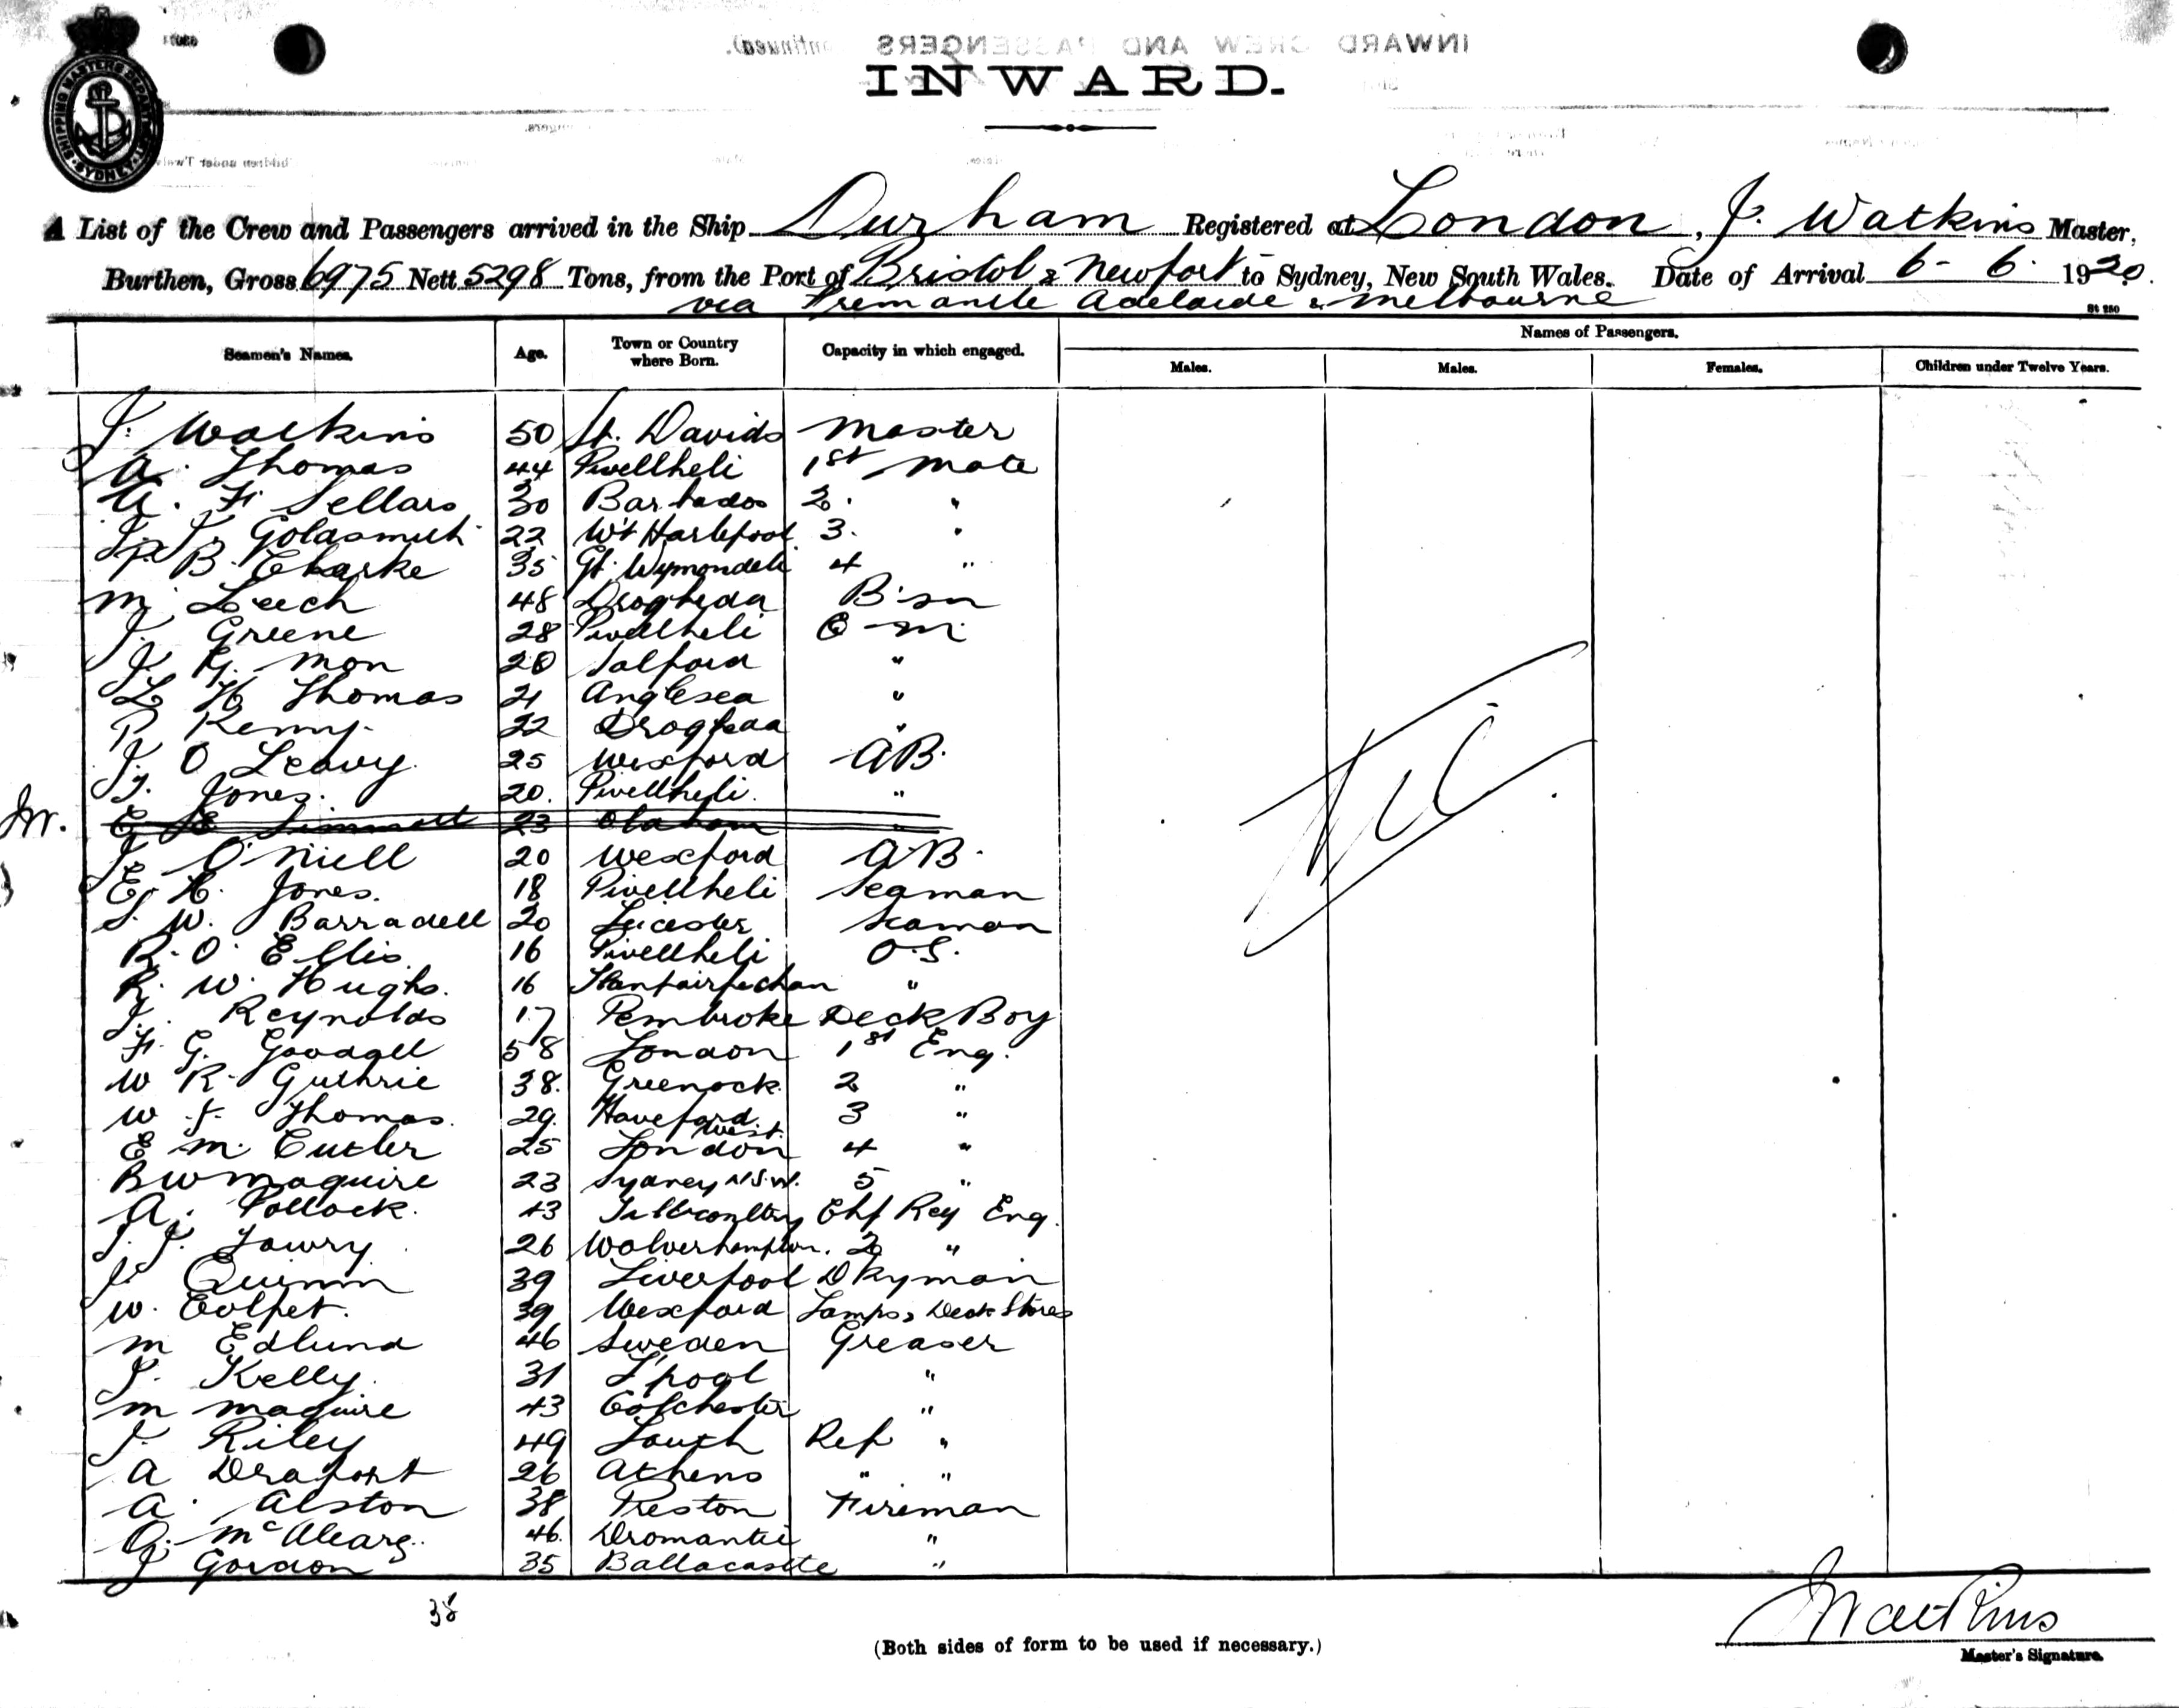 SHIPPING MASTERS DEPARTMENT
SYDNEY
INWARD CREW AND PASSENGERS (Continued).
INWARD.
A List of the Crew and Passengers arrived in the Ship Durham Registered at London, J. Watkins Master,
Burthen, Gross 6975 Nett 5298 Tons, from the Port of Bristol & Newport to Sydney, New South Wales. Date of Arrival 6-6-1920.
via Fremantle Adelaide & Melbourne
St 250
Seamen's Names. Age. Town or Country where Born. Capacity in which engaged. Names of Passengers.
Males. Males. Females. Children under Twelve Years.
J. Watkins 50 St. Davids Master
A. Thomas 44 Pwellheli 1st Mate
A. F. Sellars 30 Barbados 2. "
Goldsmith 22 Wt Hartlepool 3. "
B. Clarke 35 Gt. 4 "
M. Leech 48 Drogheda B'sn
J. Greene 28 Pwellheli Q-M.
J. G. Mon 20 Salford "
L H Thomas 21 Anglesea "
P Kenny 22 Drogheda "
J. O Leavy. 25 Wexford AB.
J. Jones. 20. Pwellheli. "
23 "
J. O'Niell 20 Wexford A.B.
E. H. Jones. 18 Pwellheli Seaman
J. W. Barradell 20 Leicester Seaman
R. O. Ellis 16 Pwellheli O.S.
R. W. Hughs. 16 Llanfairfechan "
J. Reynolds 17 Pembroke Deck Boy
F. G. Goodall 58 London 1st Eng.
W R. Guthrie 38. Greenock 2 "
W. J. Thomas. 29. Haveford West. 3 "
E M. Cutler 25 London 4 "
B W Maguire 23 Sydney N.S.W. 5 "
A. Pollock. 43 Chf Reg Eng.
J. J. Lowry. 26 Wolverhampton. 2 "
J. Quinn 39 Liverpool Dkyman
W. 39 Wexford Lamps, Deck Stores
M Edlund 46 Sweden Greaser
J. Kelly. 31 L'pool "
M Maguire 43 Colchester "
J. Riley 49 Louth Ref "
A 26 Athens " "
A. Alston 38 Preston Fireman
46. "
J Gordon 35 "
Nil
38
(Both sides of form to be used if necessary.)
J Watkins
Master's Signature.